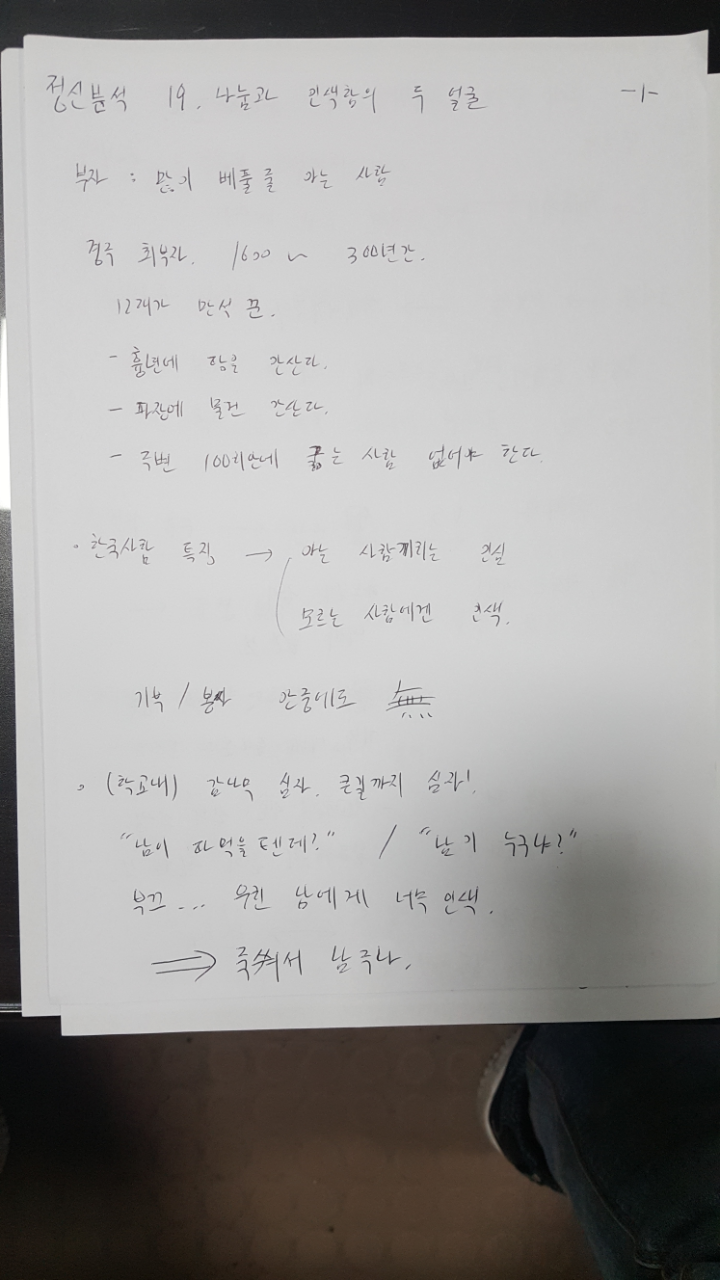 정신분석 19. 나눔과 인색함의 두 얼굴 -1-
부자 : 많이 베풀 줄 아는 사람
경주 최부자. 1600 ~ 300년간.
12대가 만석꾼.
- 흉년에 땅을 안산다.
- 파장에 물건 안산다.
- 주변 100리안에 굶는 사람 없어야 한다.
· 한국사람 특징 → 아는 사람끼리는
모르는 사람에겐 인색.
기부 / 봉사 안중에도 無
· (학교내) 감나무 심자. 큰길까지 심자!
"남이 다 먹을텐데?" / "남기 누구냐?"
부끄... 우린 남에게 너무 인색.
⇒ 죽쒀서 남주나.